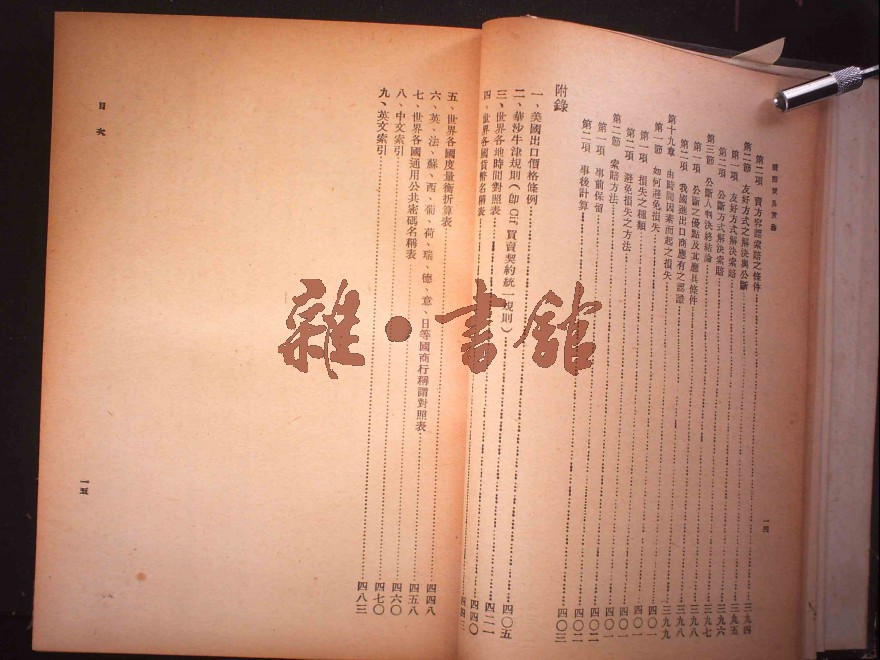 國際貿易實務
第二項 賣方容認索賠之條件……三九四
第二節 友好方式之解決與公斷……三九五
第一項 友好方式解決索賠……三九五
第二項 公斷方式解決索賠……三九六
第三節 公斷人判決終結論……三九七
第一項 公斷之優點及其應具條件……三九八
第二項 我國進出口商應有之認識……三九八
第十九章 由時間因素而起之損失……三九九
第一節 如何避免損失……四〇一
第一項 損失之種類……四〇一
第二項 避免損失之方法……四〇一
第二節 索賠方法……四〇一
第一項 事前保留……四〇二
第二項 事後計算……四〇二
附錄……四〇三
一、美國出口價格條例……四〇五
二、華沙牛津規則(即Cif買賣契約統一規則)……四二一
三、世界各地時間對照表……四四〇
四、世界各國貨幣名稱表
一四
五、世界各國度量衡折算表……四四八
六、英、法、蘇、西、葡、荷、瑞、德、意、日等國商行稱謂對照表……四五八
七、世界各國通用公共密碼名稱表……四六〇
八、中文索引……四七〇
九、英文索引……四八三
目次
一五
雜·書舘